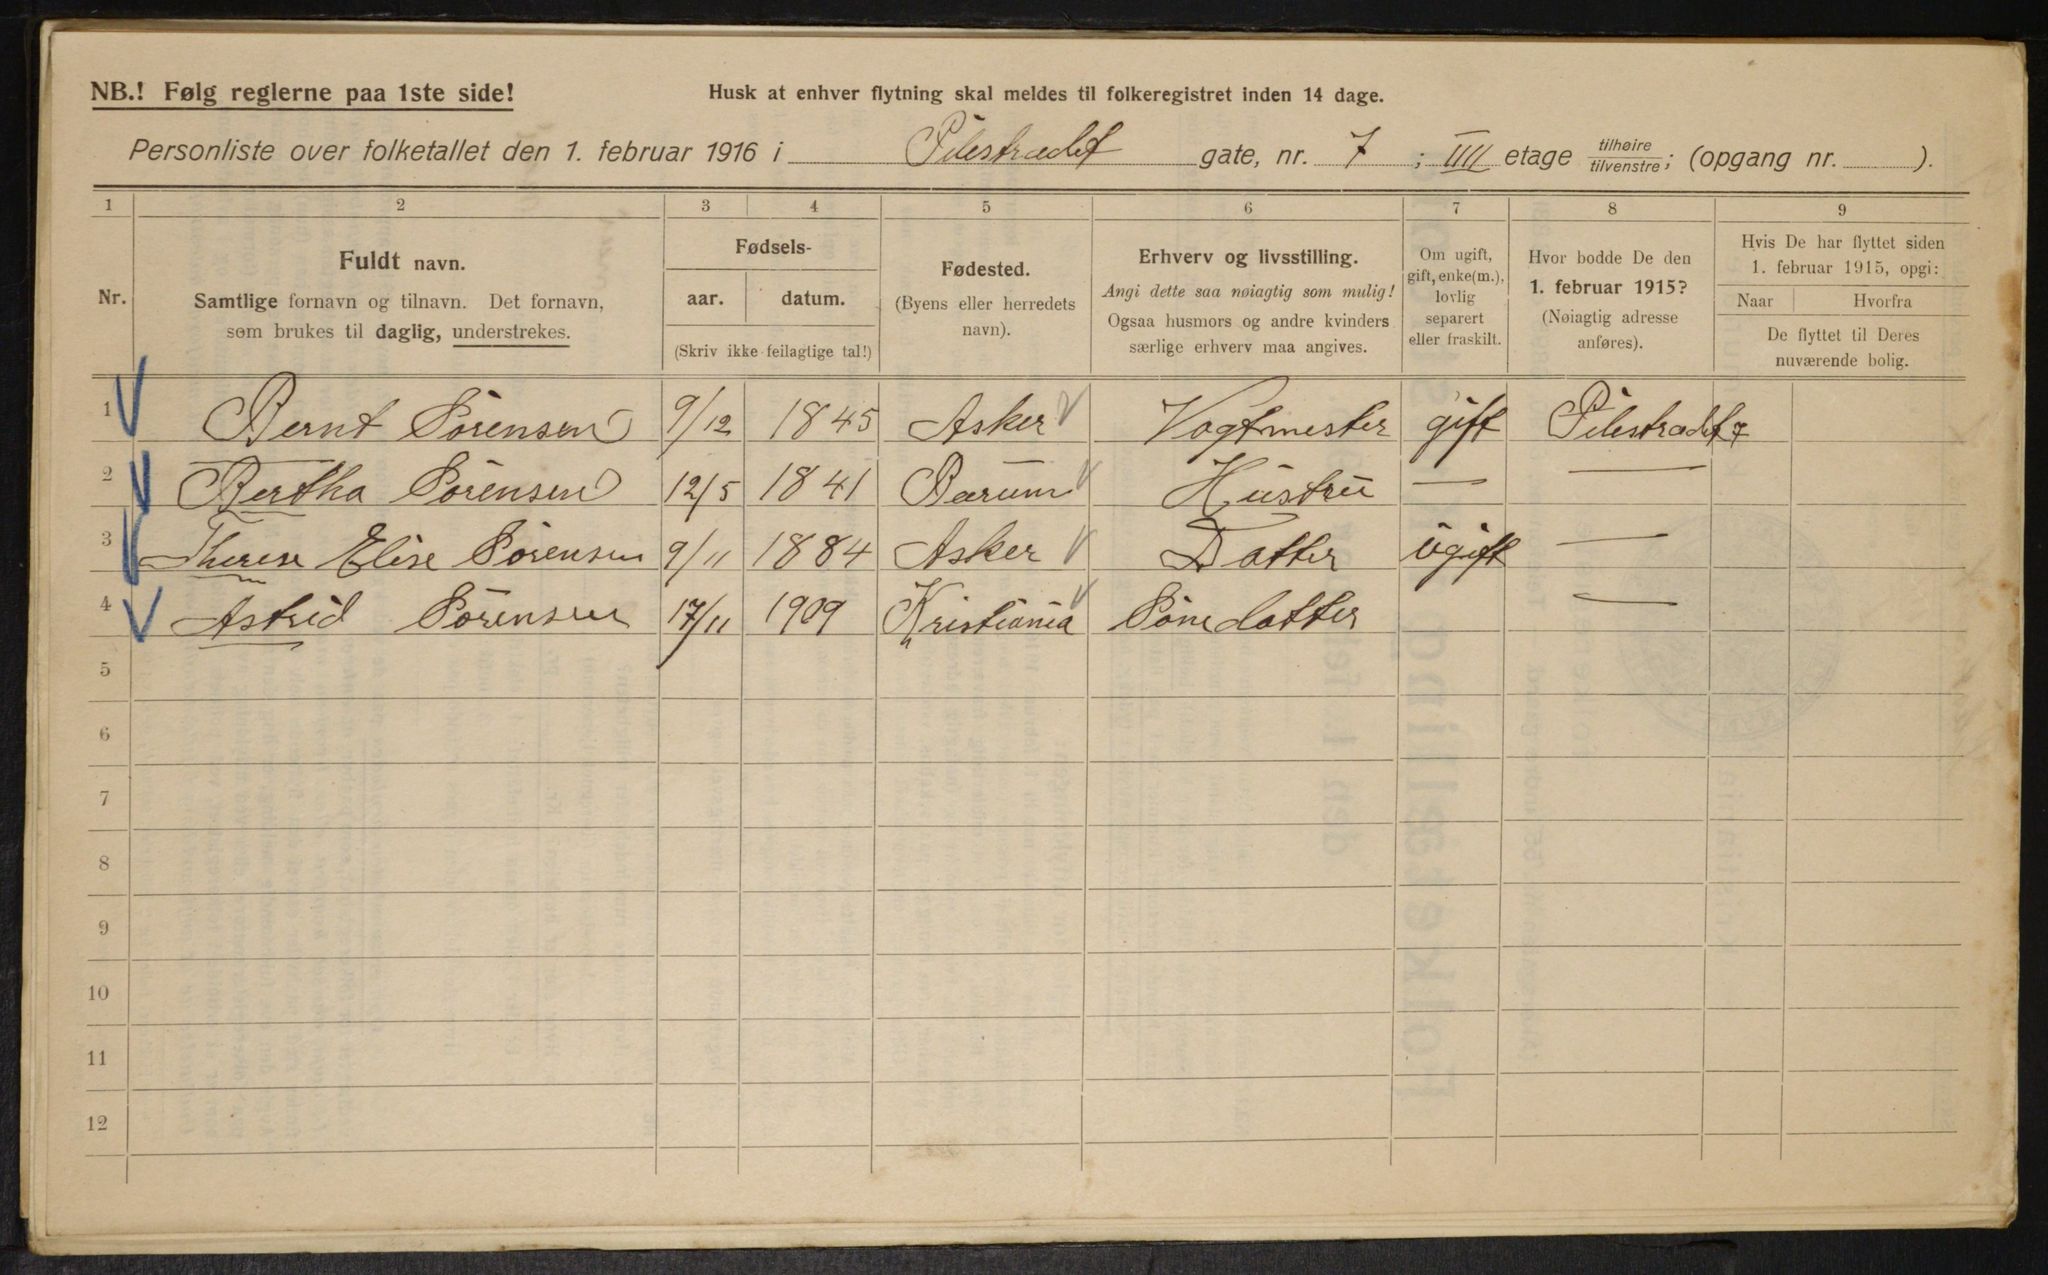 NB.! Følg reglerne paa 1ste side!
Husk at enhver flytning skal meldes til folkeregistret inden 14 dage.
Personliste over folketallet den 1. februar 1916 i Pilestrædet gate, nr. 7 ; IIII etage tilhøire/tilvenstre; (opgang nr. ).
1 2 3 4 5 6 7 8 9
Nr.
Fuldt navn.
Samtlige fornavn og tilnavn. Det fornavn,
som brukes til daglig, understrekes.
Fødsels-
aar. datum.
(Skriv ikke feilagtige tal!)
Fødested.
(Byens eller herredets
navn).
Erhverv og livsstilling.
Angi dette saa nøiagtig som mulig!
Ogsaa husmors og andre kvinders
særlige erhverv maa angives.
Om ugift,
gift, enke(m.),
lovlig
separert
eller fraskilt.
Hvor bodde De den
1. februar 1915?
(Nøiagtig adresse
anføres).
Hvis De har flyttet siden
1. februar 1915, opgi:
Naar Hvorfra
De flyttet til Deres
nuværende bolig.
1 Bernt Sørensen 9/12 1845 Asker Vogtmester gift Pilestrædet 7
2 Bertha Sørensen 12/5 1841 Bærum Hustru — —
3 Therese Elise Sørensen 9/11 1884 Asker Datter ugift —
4 Astrid Sørensen 17/11 1909 Kristiania Sønedatter —
5
6
7
8
9
10
11
12